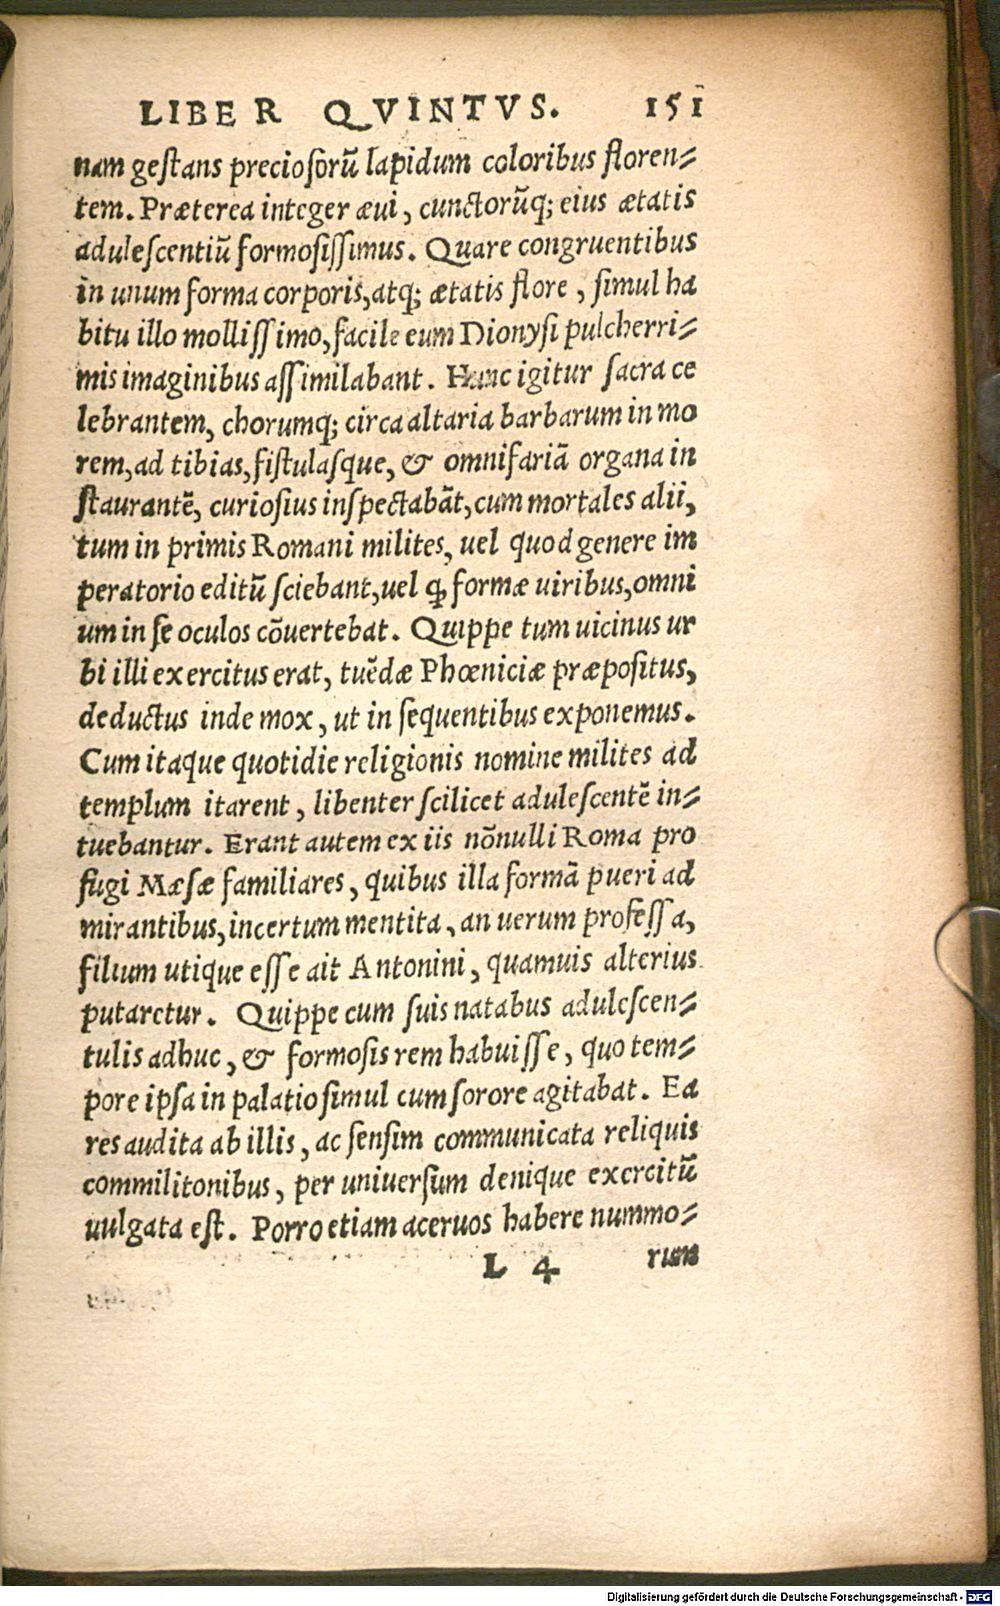 LIBER QVINTVS. 151
nam geſtans precioſorũ lapidum coloribus floren⸗
tem. Præterea integer æui, cunctorũq; eius ætatis
aduleſcentiũ formoſiſſimus. Quare congruentibus
in unum forma corporis, atq; ætatis flore, ſimul ha
bitu illo molliſſimo, facile eum Dionyſi pulcherri⸗
mis imaginibus aſſimilabant. Hunc igitur ſacra ce
lebrantem, chorumq; circa altaria barbarum in mo
rem, ad tibias, fiſtulaſque, & omnifariã organa in
ſtaurantẽ, curioſius inſpectabãt, cum mortales alii,
tum in primis Romani milites, uel quod genere im
peratorio editũ ſciebant, uel ꝙ formæ uiribus, omni
um in ſe oculos cõuertebat. Quippe tum uicinus ur
bi illi exercitus erat, tuẽdæ Phœniciæ præpoſitus,
deductus inde mox, ut in ſequentibus exponemus.
Cum itaque quotidie religionis nomine milites ad
templum itarent, libenter ſcilicet aduleſcentẽ in⸗
tuebantur. Erant autem ex iis nõnulli Roma pro
fugi Mæſæ familiares, quibus illa formã pueri ad
mirantibus, incertum mentita, an uerum profeſſa,
filium utique eſſe ait Antonini, quamuis alterius
putaretur. Quippe cum ſuis natabus aduleſcen⸗
tulis adhuc, & formoſis rem habuiſſe, quo tem⸗
pore ipſa in palatio ſimul cum ſorore agitabat. Ea
res audita ab illis, ac ſenſim communicata reliquis
commilitonibus, per uniuerſum denique exercitũ
uulgata eſt. Porro etiam aceruos habere nummo⸗
L 4 rum
Digitalisierung gefördert durch die Deutsche Forschungsgemeinschaft - DFG